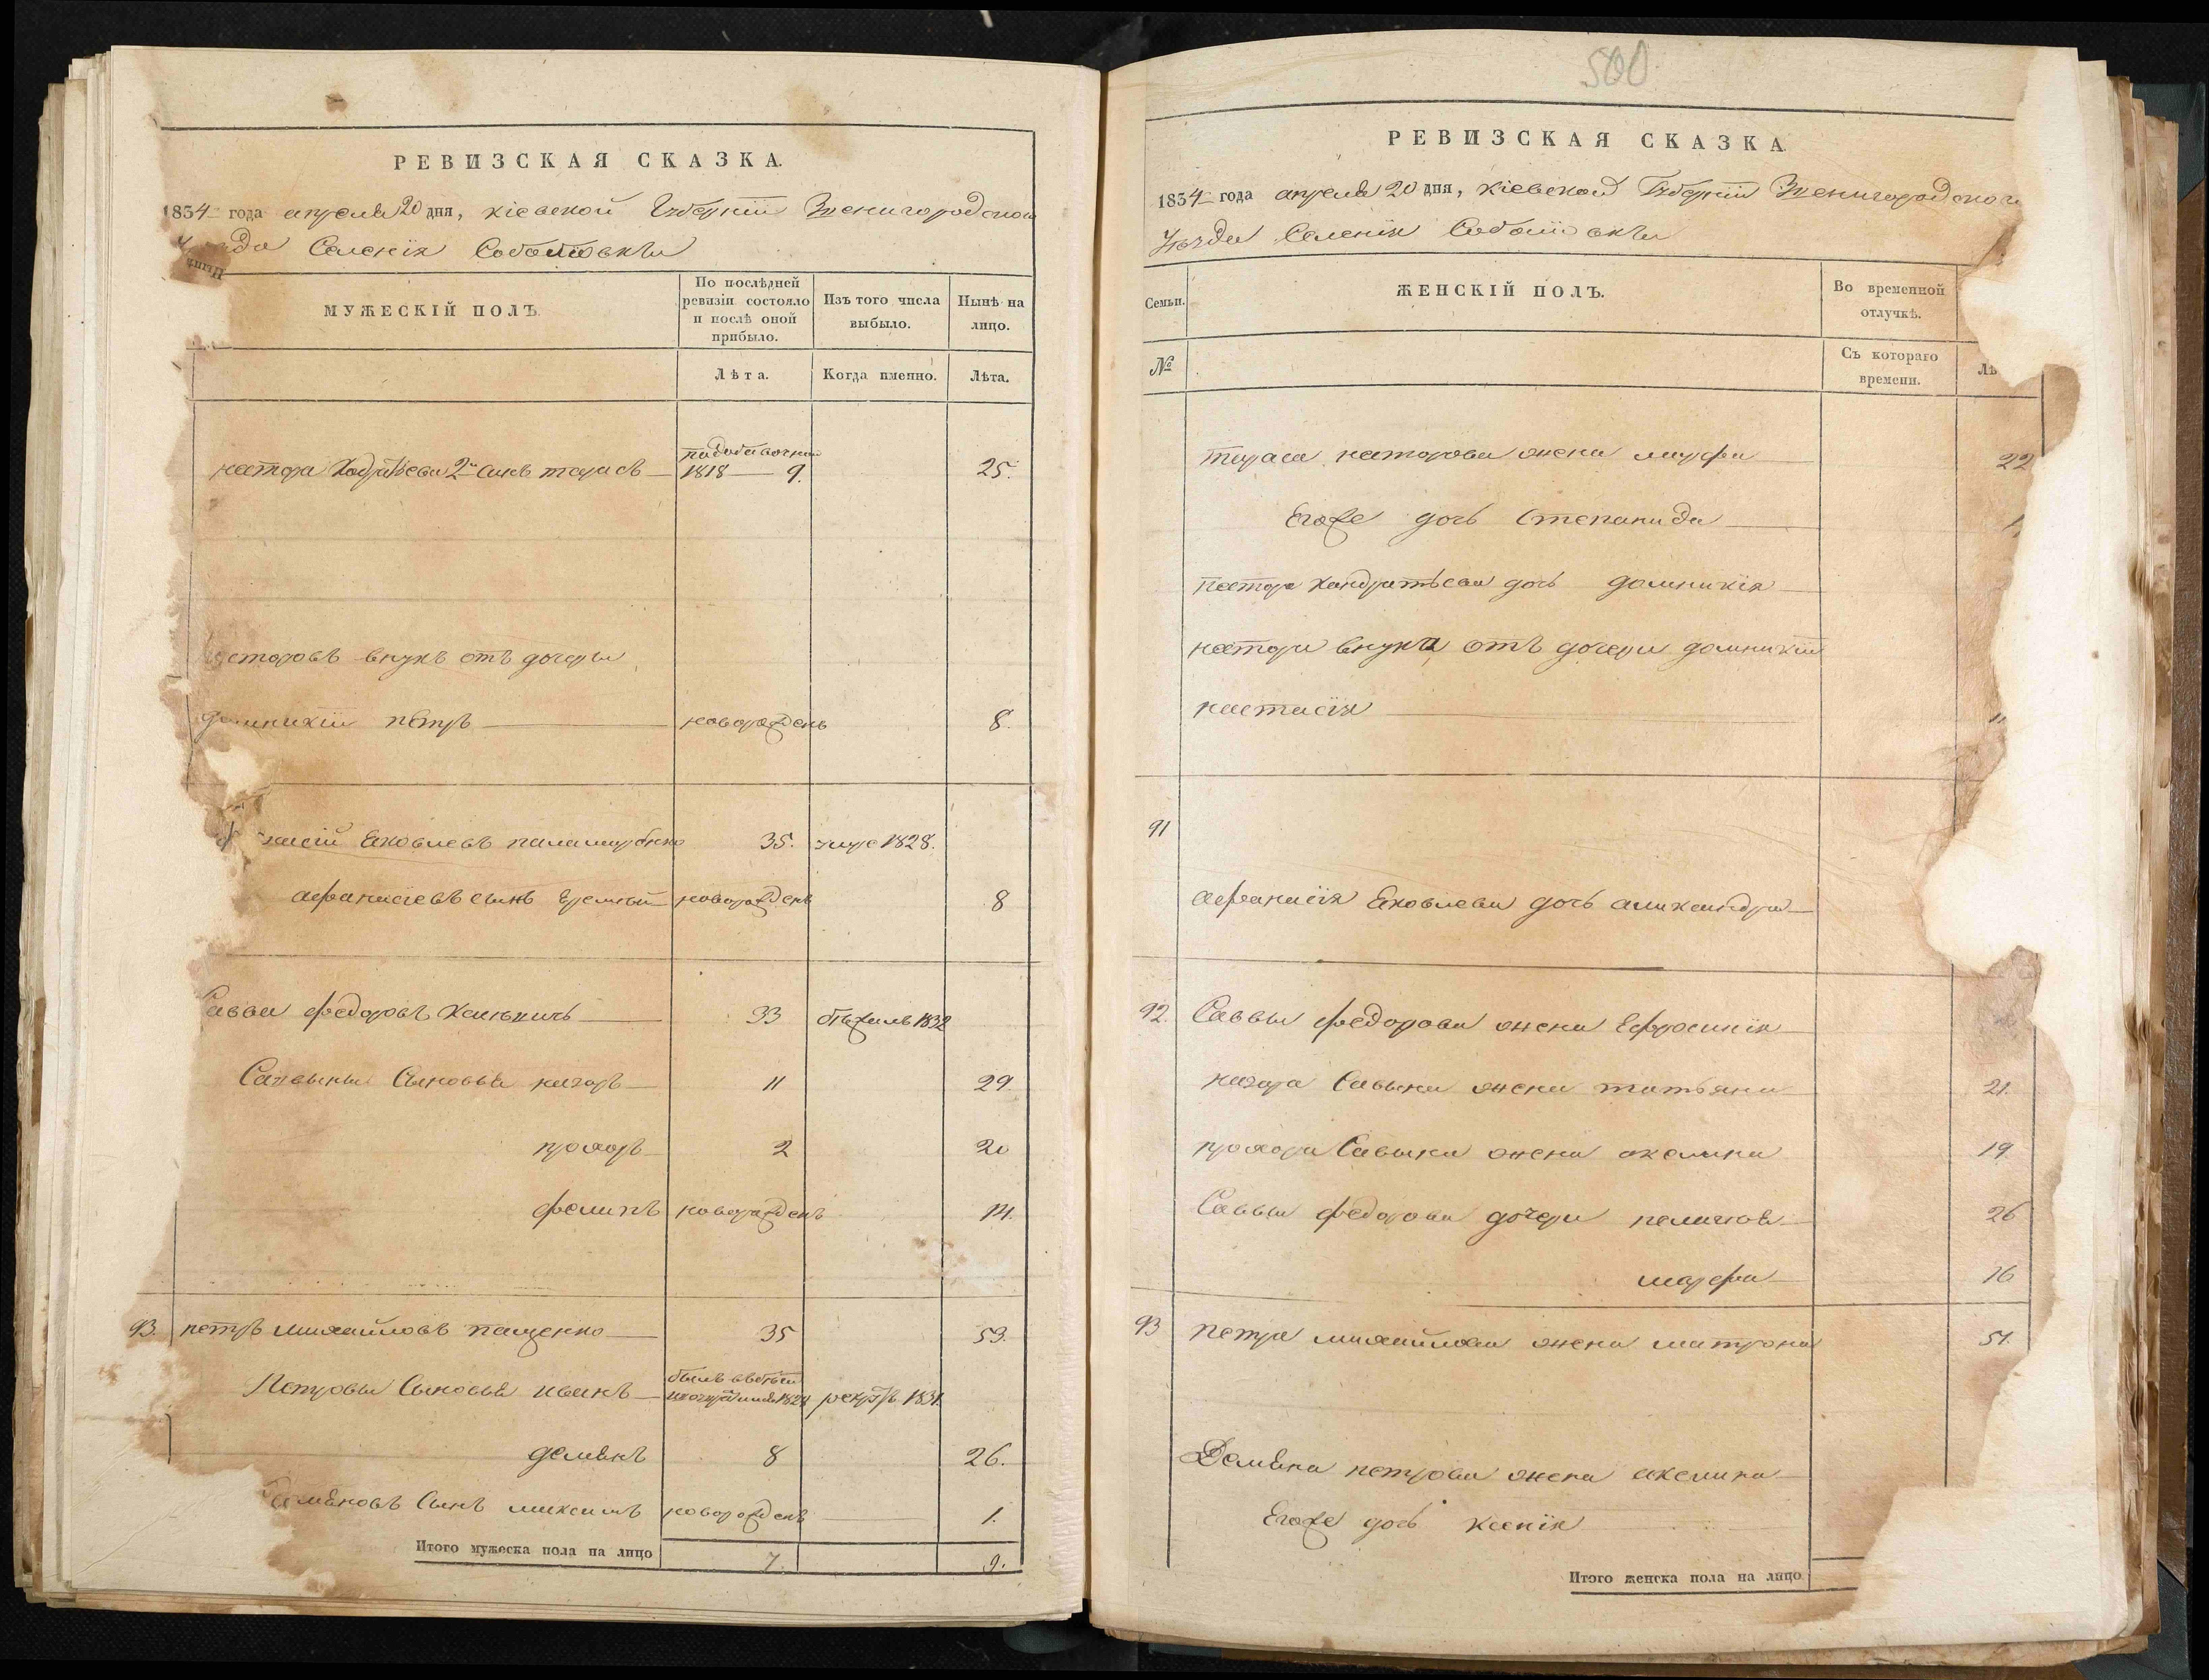 РЕВИЗСКАЯ СКАЗКА.
1834 года апреля 20 дня, Кіевской Губерніи Звенигородского
Селенія Соболювки
МУЖЕСКІЙ ПОЛЪ.
По послѣдней ревизіи состояло и послѣ оной прибыло.
Изъ того числа выбыло.
Нынѣ на лицо.
Лѣта.
Когда именно.
Лѣта.
нестора 2й синъ тарасъ 1818 — 9. 25.
несторовъ внукъ отъ дочери
домникіи петръ новорожденъ 8.
Яковлевъ паламарenko 35. умре 1828.
афанасіевъ сынъ Еремѣй новорожденъ 8
Савва федоровъ 33 бѣжалъ 1832
Саввины Сыновья назаръ 11 29
прохоръ 2 20
филипъ новорожденъ 14.
93. петръ михайловъ пащенко 35 53.
Петровы Сыновья иванъ рекрутъ 1831.
демянъ 8 26.
демяновъ Сынъ максимъ новорожденъ 1.
Итого мужеска пола на лицо 7. 9.
500
РЕВИЗСКАЯ СКАЗКА.
1834 года апреля 20 дня, Кіевской Губерніи Звенигородского
Уѣзда Селенія Соболювки
Семьи.
ЖЕНСКІЙ ПОЛЪ.
Во временной отлучкѣ.
№
Съ котораго времени.
тараса несторова жена марфа 22
Егоже дочь Степанида
нестора Кондратьева дочь домникія
нестора внука отъ дочери домникіи
настасія
91
афанасія Яковлева дочь александра
92. Саввы федорова жена Ефросинія
назара Савына жена татьяна 21.
прохора Савына жена акелина 19
Саввы федорова дочери пелагея 26
марфа 16
93 Петра михайлова жена матрона 51.
Демяна петрова жена акелина
Егоже дочь ксенія
Итого женска пола на лицо